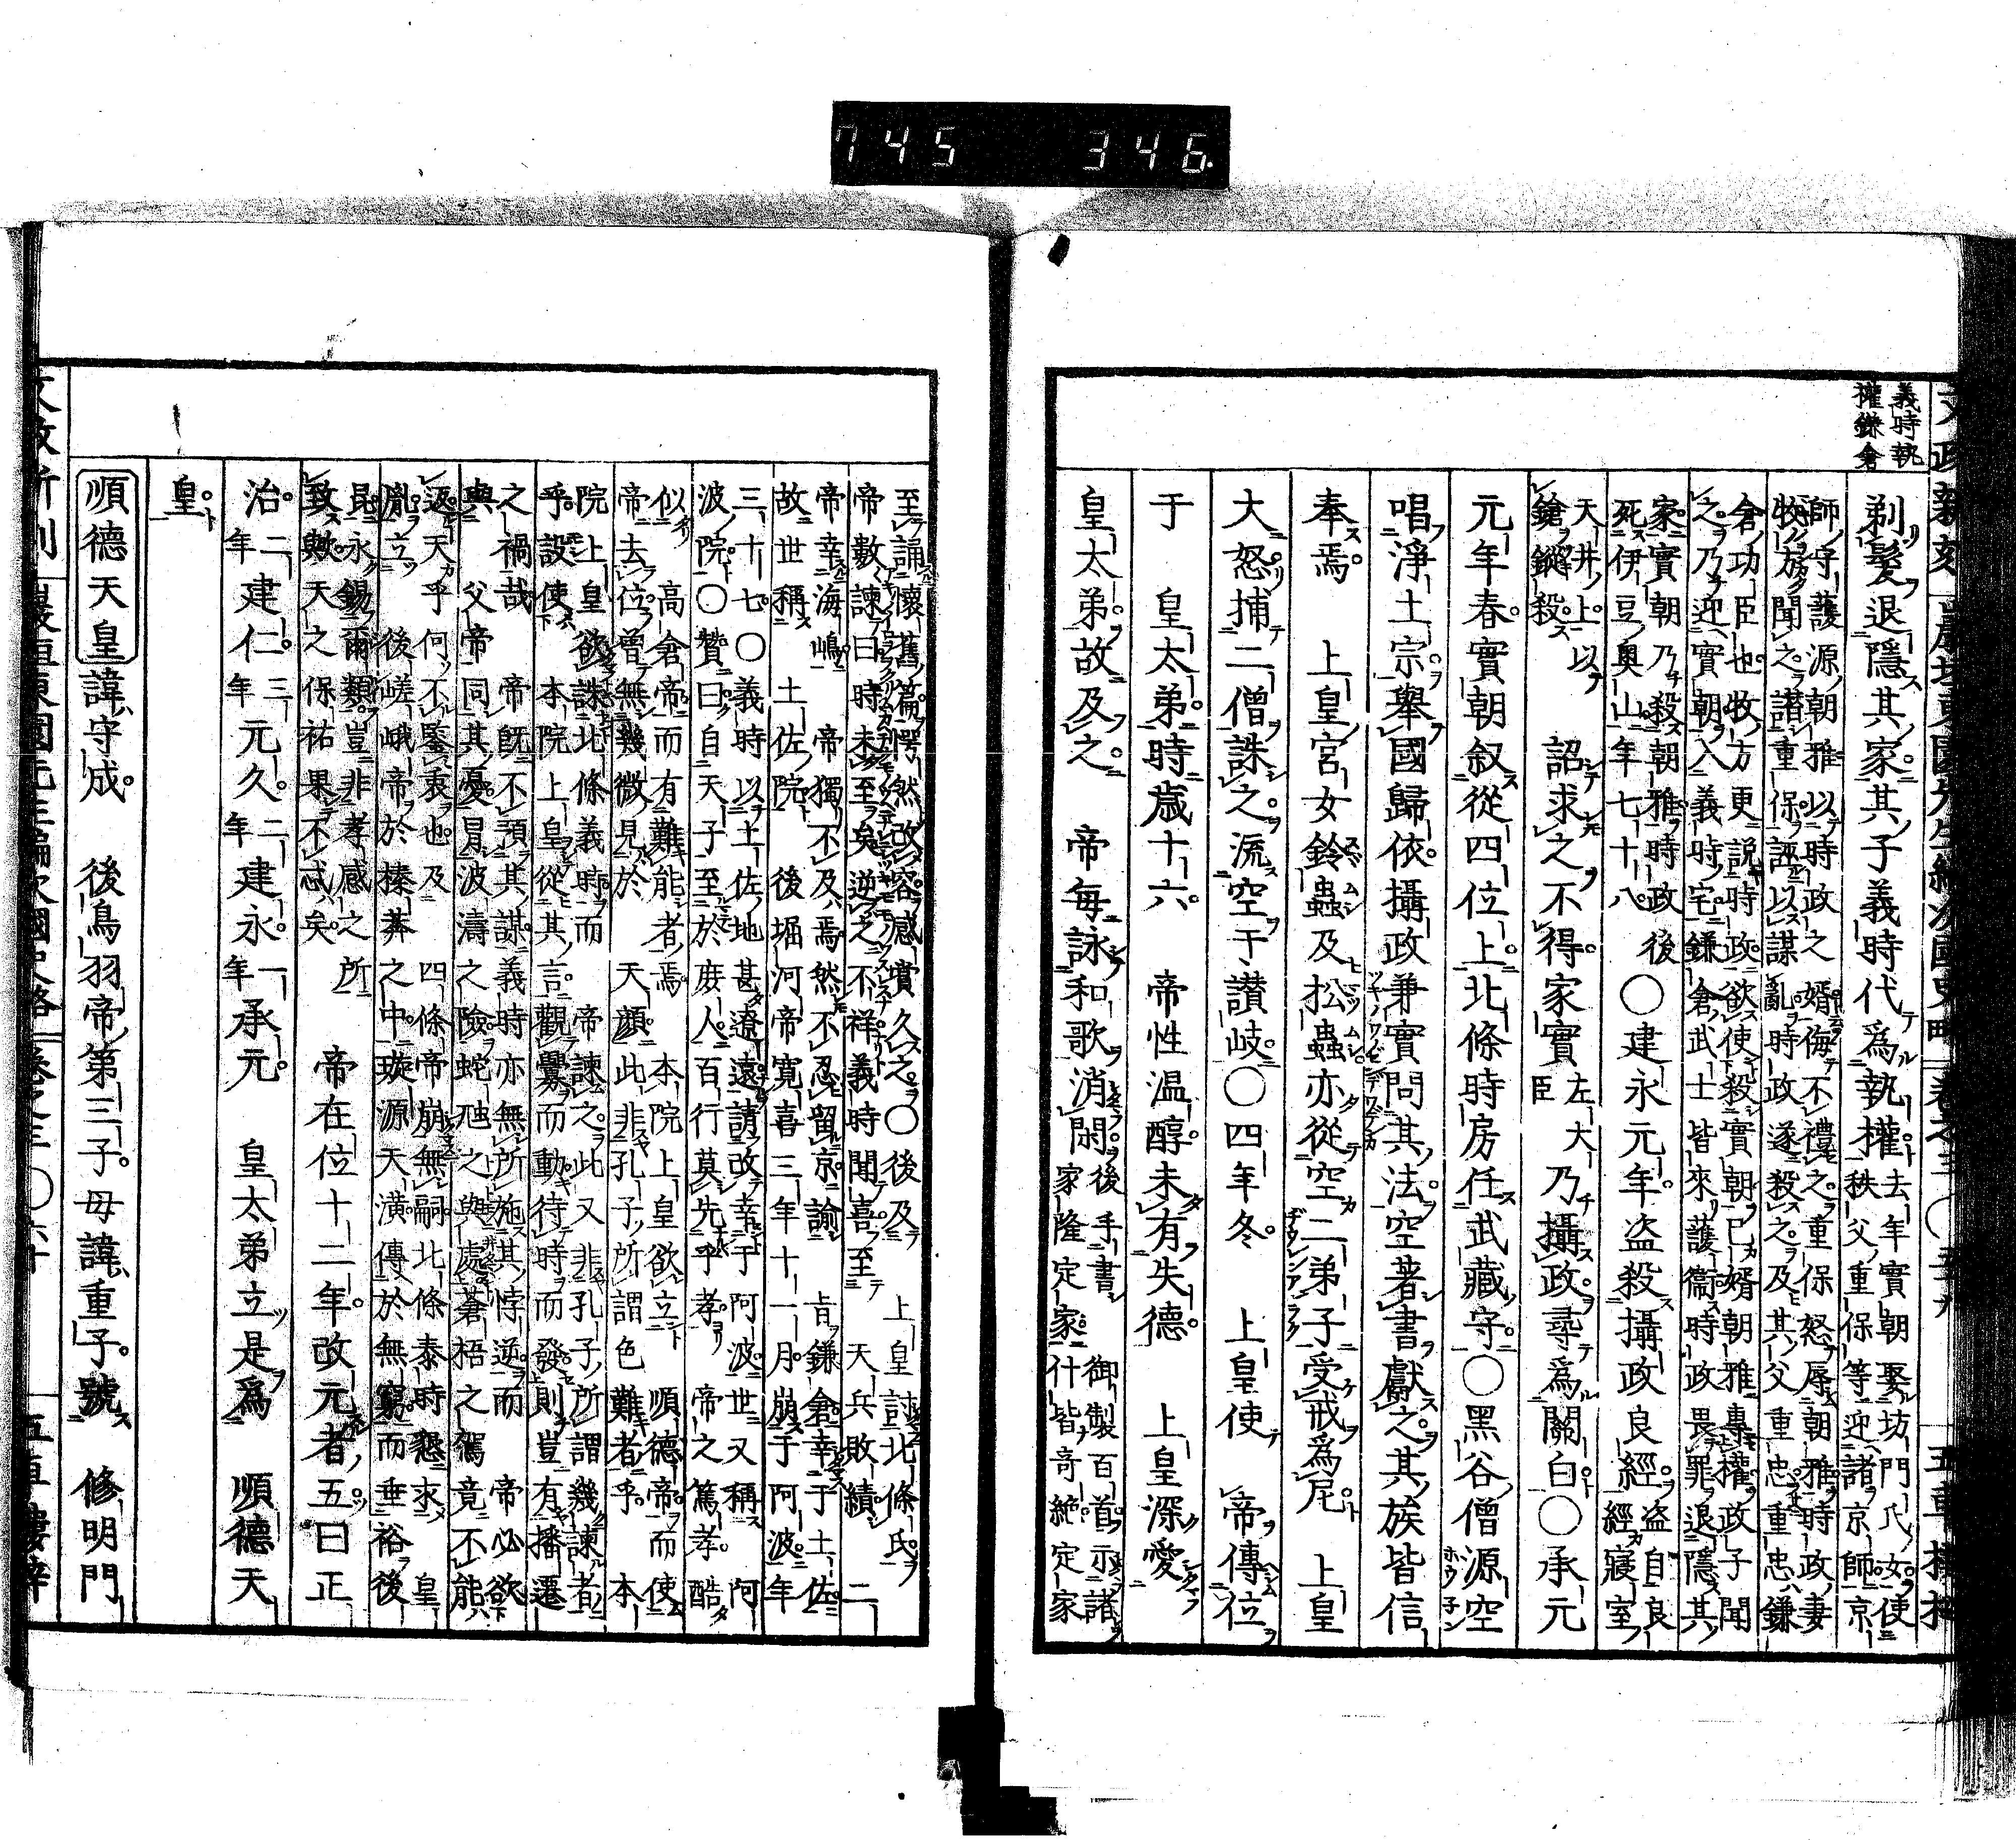 745 346.
義時執
權鎌倉
剃髮退隱其家其子義時代爲執權
去年實朝娶坊門氏女使
秩父重保等迎諸京師京
師守護源朝雅以時政之婿侮不禮之重保怒辱朝雅時政妻
牧方聞之譖重保誣以謀亂時政遂殺之及其父重忠重忠鎌
倉功臣也牧方更說時政欲使殺實朝已婿朝雅專權政子聞
之乃迎實朝入義時宅鎌倉武士皆來護衞時政畏罪退隱其
家實朝乃殺朝雅時政後
死伊豆奥山年七十八
〇建永元年盗殺攝政良經
盗自良
經寢室
天井上以
鎗鏦殺
詔求之不得家實
左大
臣
乃攝政尋爲關白〇承元
元年春實朝叙從四位上北條時房任武藏守〇黑谷僧源空
唱淨土宗舉國歸依攝政兼實問其法空著書獻之其族皆信
奉焉 上皇宮女鈴蟲及松蟲亦從空二弟子受戒爲尼 上皇
大怒捕二僧誅之流空于讃岐〇四年冬 上皇使 帝傳位
于 皇太弟時歳十六 帝性温醇未有失德 上皇深愛
皇太弟故及之 帝每詠和歌消閑
後手書 御製百首示諸
家隆定家定家什皆奇絶定家
至誦懷舊篇愕然改容感賞久之〇後及 上皇討北條氏
帝數諫曰時未至矣逆之不祥義時聞喜至 天兵敗績二
帝幸海嶋 帝獨不及焉然不忍留京諭 旨鎌倉幸于土佐
故世稱土佐院 後堀河帝寛喜三年十一月崩于阿波年
三十七〇義時以土佐地甚遼遠請改幸于阿波世又稱阿
波院〇贊曰自天子至於庶人百行莫先乎孝 帝之篤孝酷
似 高倉帝而有難能者焉 本院上皇欲立 順德帝而使
帝去位曾無幾微見於 天顔此非孔子所謂色難者乎 本
院上皇欲誅北條義時而 帝諫之此又非孔子所謂幾諫者
乎設使 本院上皇從其言觀釁而動待時而發則豈有播遷
之禍哉 帝既不預其謀義時亦無所施其悖逆而 帝必欲
與 父帝同其憂冒波濤之險蛇虺之與處蒼梧之駕竟不能
返天乎何不鑒衷也及 四條帝崩無嗣北條泰時懇求 皇
胤立 後嵯峨帝於榛莽之中璇源天潢傳於無窮而垂裕後
昆永錫爾類豈非孝感之所
致歟天之保祐果不忒矣
帝在位十二年改元者五曰正
治
二年
建仁
三年
元久
二年
建永
一年
承元 皇太弟立是爲 順德天
皇
順德天皇諱守成 後鳥羽帝第三子母諱重子號 修明門